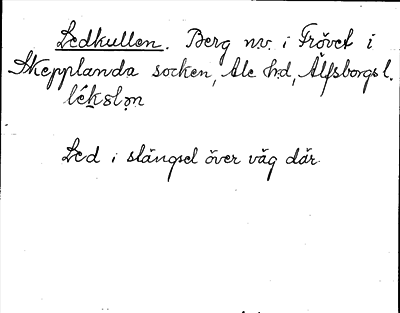 Ledkullen. Berg nv. i Frövet i
Skepplanda socken, Ale hd, Älfsborgs l.
Led i stängsel över väg där